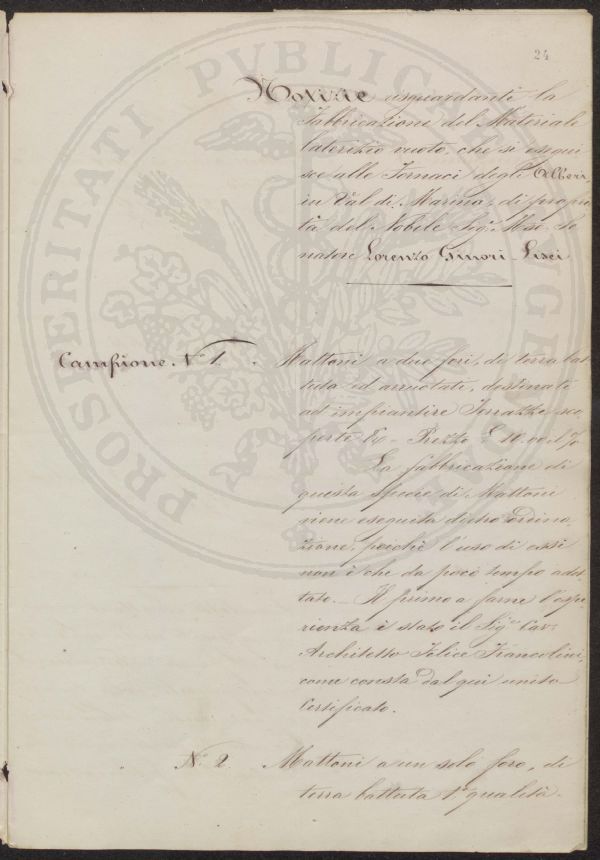 24
Notizie risguardanti la
Fabbricazione del Materiale
laterizio vuoto, che si esegui
sce alle Fornaci degli Alberi,
in Val di Marina, di proprie
tà del Nobile Sig. Mse. Se
natore Lorenzo Ginori-Lisci
Campione. N. 1. Mattoni a due fori, di terra bat
tuta ed arruotati, destinati
ad impiantire Terrazze sco
perte - Prezzo £ 10.00 il %
La fabbricazione di
questa specie di Mattoni
viene eseguita dietro ordina
zione, poiché l'uso di essi
non è che da poco tempo adot
tato. - Il primo a farne l'espe
rienza è stato il Sigr. Cav:
Architetto Felice Francolini,
come consta dal qui unito
Certificato.
N. 2 Mattoni a un solo foro, di
terra battuta 1a qualità.
PROSPERITATI PUBLICAE AUGENDAE